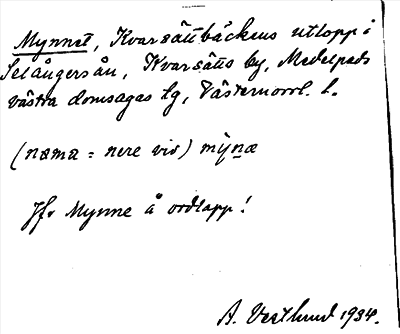 Mynnet, Kvarsättbäckens utlopp i
Selångersån, Kvarsätts by, Medelpads
västra domsagas tg, Västernorrl. l.
(nəma = nere vid) mỳnæ
Jfr Mynne å ordlapp!
A. Vestlund 1934.